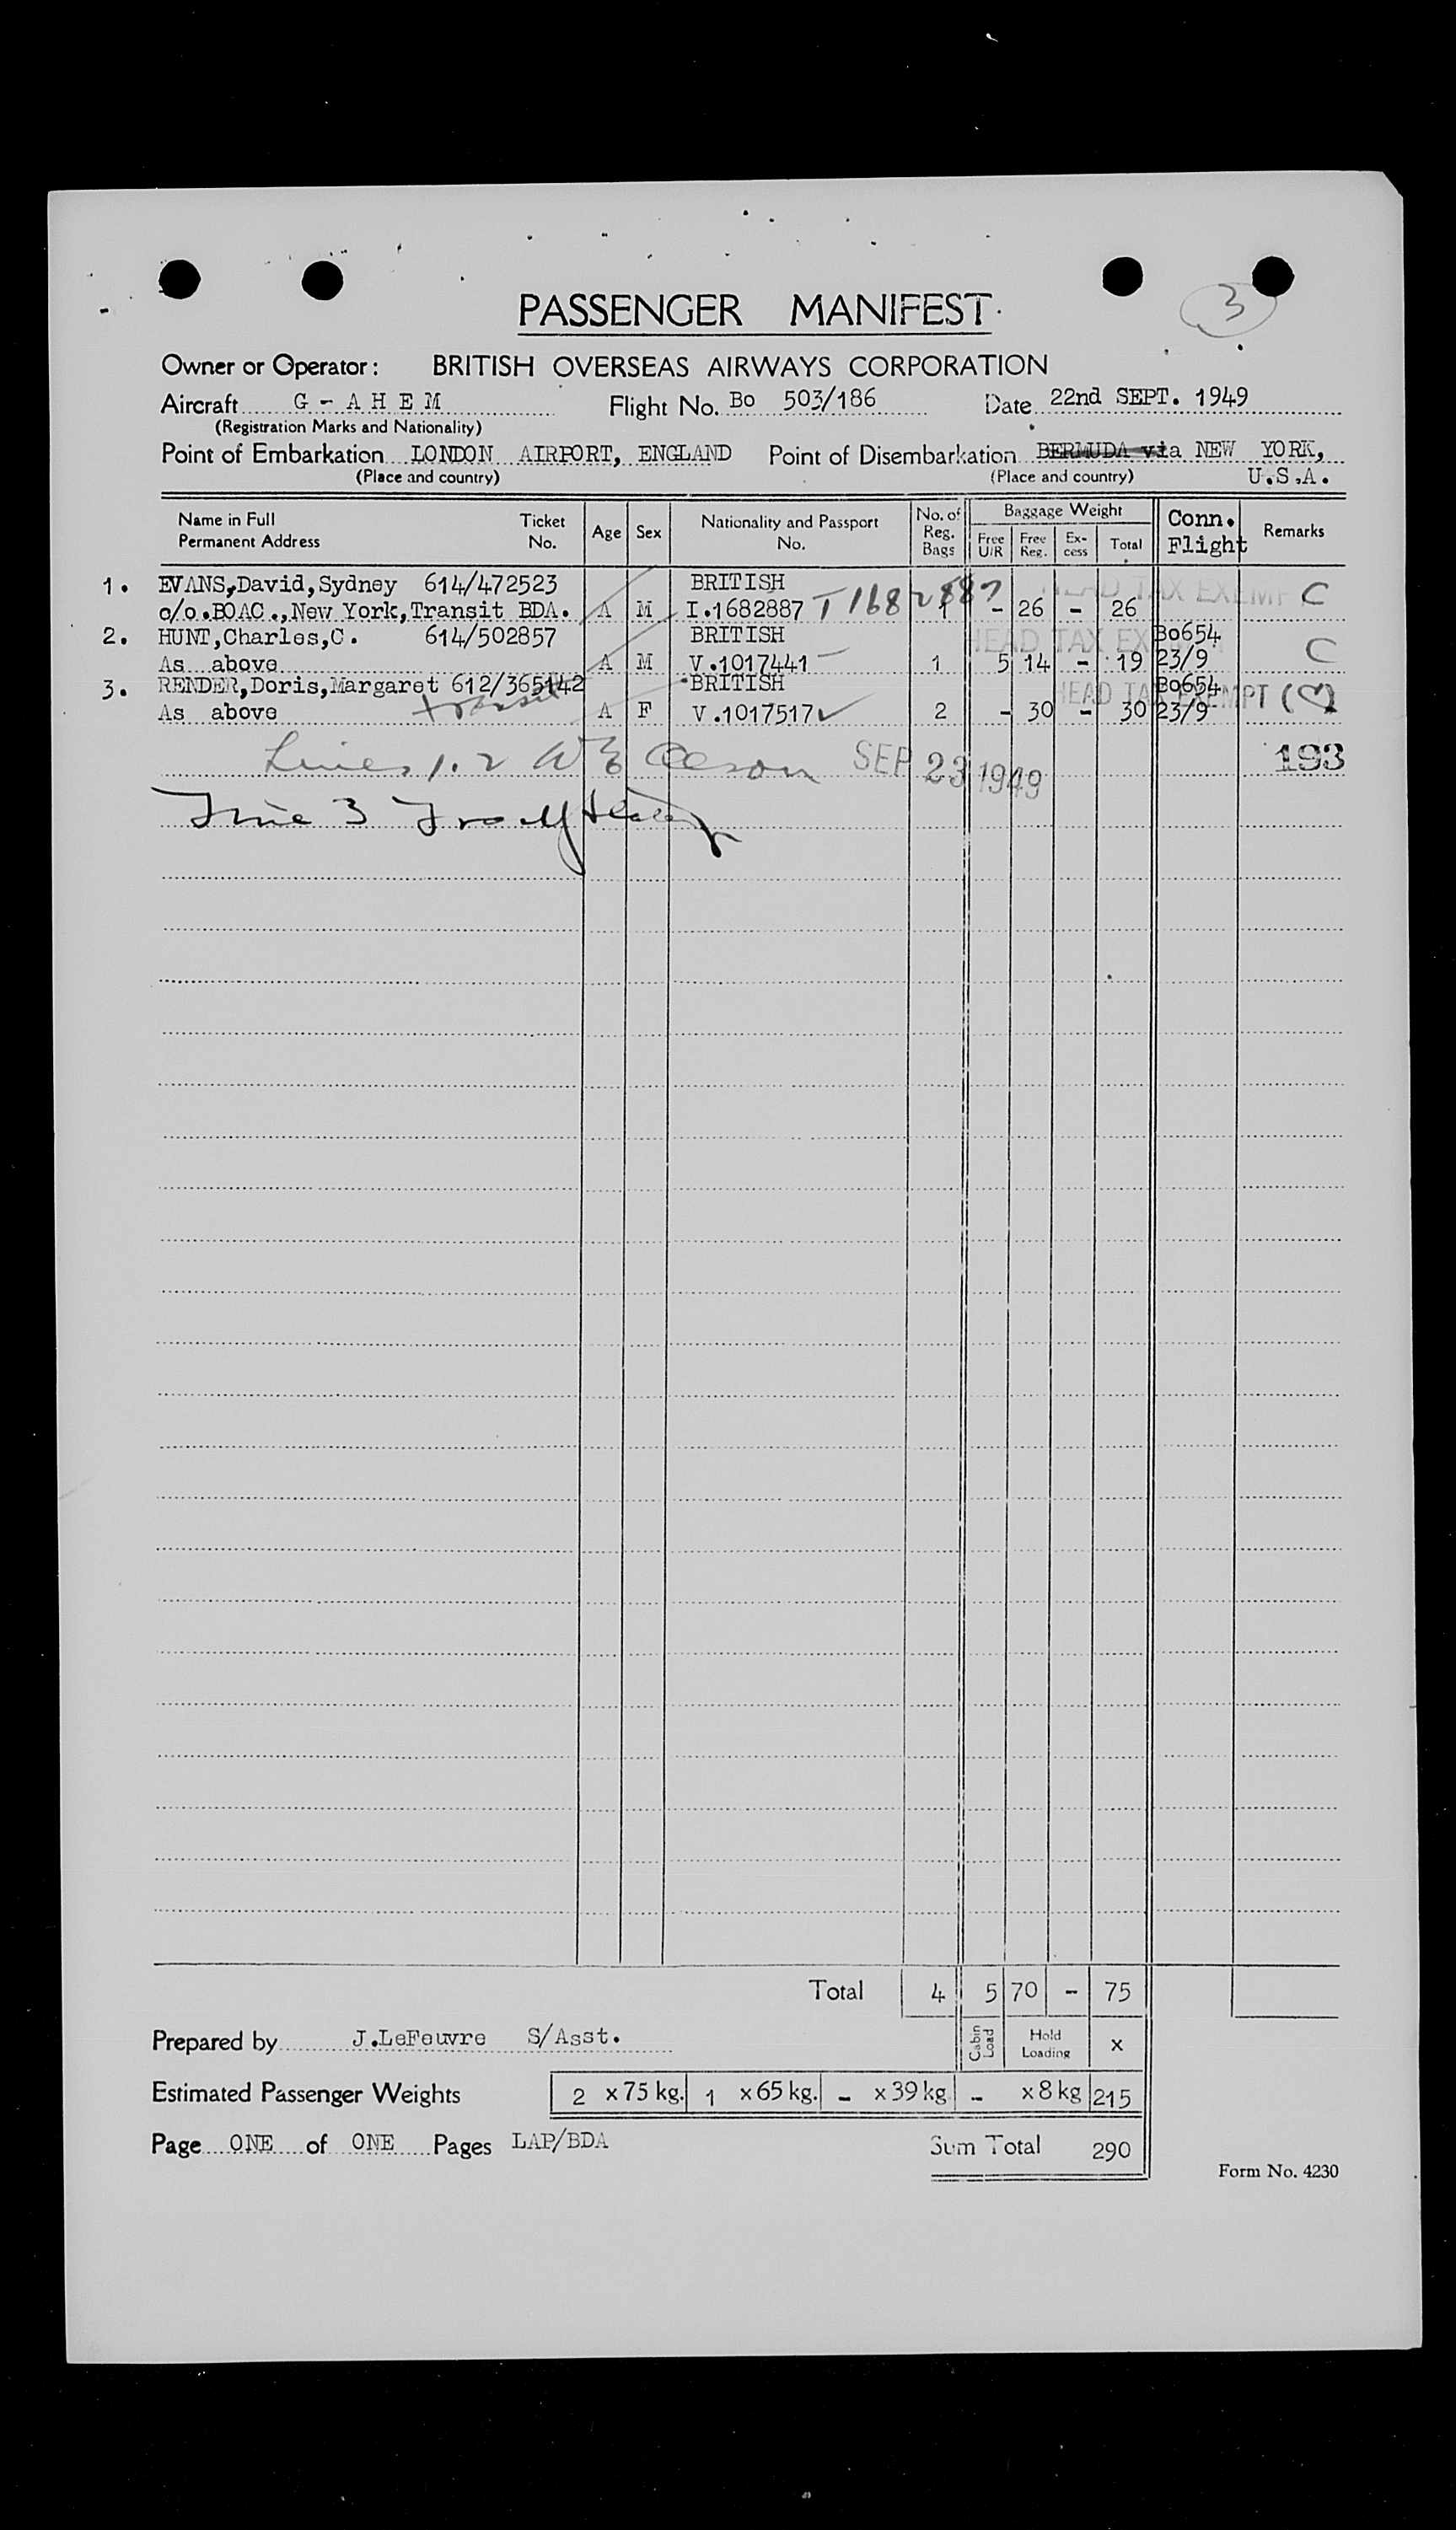 3
PASSENGER MANIFEST
Owner or Operator: BRITISH OVERSEAS AIRWAYS CORPORATION
Aircraft G - A H E M Flight No. Bo 503/186 Date 22nd SEPT. 1949
(Registration Marks and Nationality)
Point of Embarkation LONDON AIRPORT, ENGLAND Point of Disembarkation BERMUDA via NEW YORK,
(Place and country) (Place and country) U.S.A.
Name in Full Ticket Age Sex Nationality and Passport No. of Baggage Weight Conn. Remarks
Permanent Address No. No. Reg. Bags Free U/R Free Reg. Ex-cess Total Flight
1. EVANS,David,Sydney 614/472523 BRITISH HEAD TAX EXEMPT C
c/o.BOAC.,New York,Transit BDA. A M I.1682887 I 1682887 1 - 26 - 26
2. HUNT,Charles,C. 614/502857 BRITISH HEAD TAX EX Bo654
As above A M V.1017441 1 5 14 - 19 23/9 C
3. RENDER,Doris,Margaret 612/365142 BRITISH HEAD TAX EXEMPT Bo654
As above transit A F V.1017517 2 - 30 - 30 23/9
Lines 1.2 SEP 23 1949 193
Line 3
Total 4 5 70 - 75
Prepared by J.LeFeuvre S/Asst. Cabin Load Hold Loading x
Estimated Passenger Weights 2 x 75 kg. 1 x 65 kg. - x 39 kg - x 8 kg 215
Page ONE of ONE Pages LAP/BDA Sum Total 290
Form No. 4230